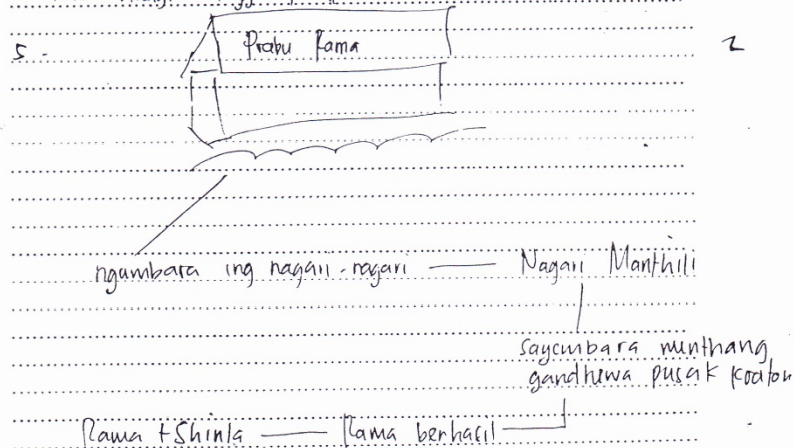 5 -
Prabu Rama
2
ngumbara ing nagari-nagari — Nagari Manthili
sayembara menthang
gandhewa pusak keaton
Rama + Shinta — Rama berhasil